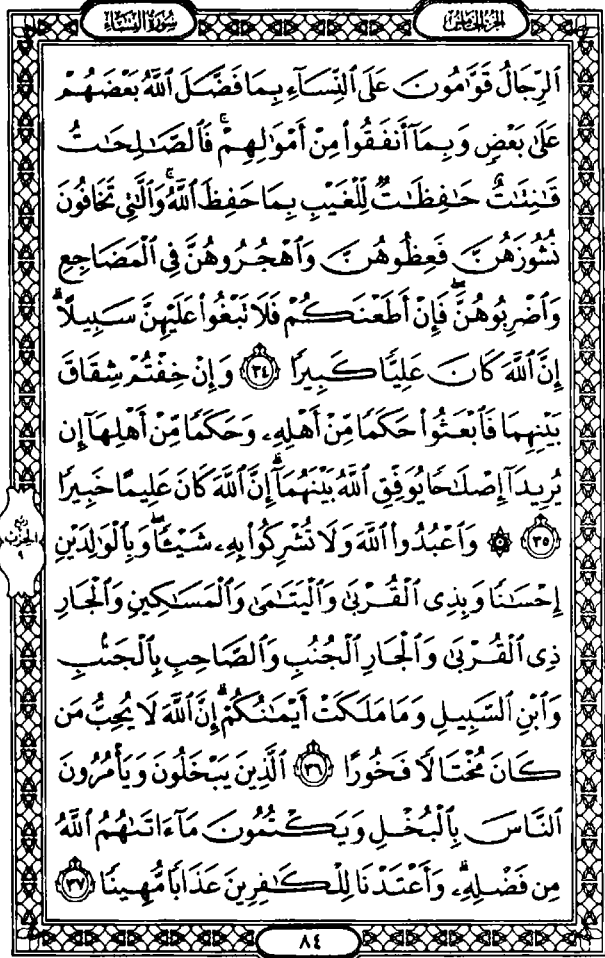 الجزء الخامس
سورة النساء
ٱلرِّجَالُ قَوَّٰمُونَ عَلَى ٱلنِّسَآءِ بِمَا فَضَّلَ ٱللَّهُ بَعْضَهُمْ
عَلَىٰ بَعْضٍ وَبِمَآ أَنفَقُوا۟ مِنْ أَمْوَٰلِهِمْ ۚ فَٱلصَّـٰلِحَـٰتُ
قَـٰنِتَـٰتٌ حَـٰفِظَـٰتٌ لِّلْغَيْبِ بِمَا حَفِظَ ٱللَّهُ ۚ وَٱلَّـٰتِى تَخَافُونَ
نُشُوزَهُنَّ فَعِظُوهُنَّ وَٱهْجُرُوهُنَّ فِى ٱلْمَضَاجِعِ
وَٱضْرِبُوهُنَّ ۖ فَإِنْ أَطَعْنَكُمْ فَلَا تَبْغُوا۟ عَلَيْهِنَّ سَبِيلًا ۗ
إِنَّ ٱللَّهَ كَانَ عَلِيًّا كَبِيرًا ٣٤ وَإِنْ خِفْتُمْ شِقَاقَ
بَيْنِهِمَا فَٱبْعَثُوا۟ حَكَمًا مِّنْ أَهْلِهِۦ وَحَكَمًا مِّنْ أَهْلِهَآ إِن
يُرِيدَآ إِصْلَـٰحًا يُوَفِّقِ ٱللَّهُ بَيْنَهُمَآ ۗ إِنَّ ٱللَّهَ كَانَ عَلِيمًا خَبِيرًا
٣٥ ۞ وَٱعْبُدُوا۟ ٱللَّهَ وَلَا تُشْرِكُوا۟ بِهِۦ شَيْـًٔا ۖ وَبِٱلْوَٰلِدَيْنِ
إِحْسَـٰنًا وَبِذِى ٱلْقُرْبَىٰ وَٱلْيَتَـٰمَىٰ وَٱلْمَسَـٰكِينِ وَٱلْجَارِ
ذِى ٱلْقُرْبَىٰ وَٱلْجَارِ ٱلْجُنُبِ وَٱلصَّاحِبِ بِٱلْجَنۢبِ
وَٱبْنِ ٱلسَّبِيلِ وَمَا مَلَكَتْ أَيْمَـٰنُكُمْ ۗ إِنَّ ٱللَّهَ لَا يُحِبُّ مَن
كَانَ مُخْتَالًا فَخُورًا ٣٦ ٱلَّذِينَ يَبْخَلُونَ وَيَأْمُرُونَ
ٱلنَّاسَ بِٱلْبُخْلِ وَيَكْتُمُونَ مَآ ءَاتَىٰهُمُ ٱللَّهُ
مِن فَضْلِهِۦ ۗ وَأَعْتَدْنَا لِلْكَـٰفِرِينَ عَذَابًا مُّهِينًا ٣٧
ربع
الحزب
٩
٨٤